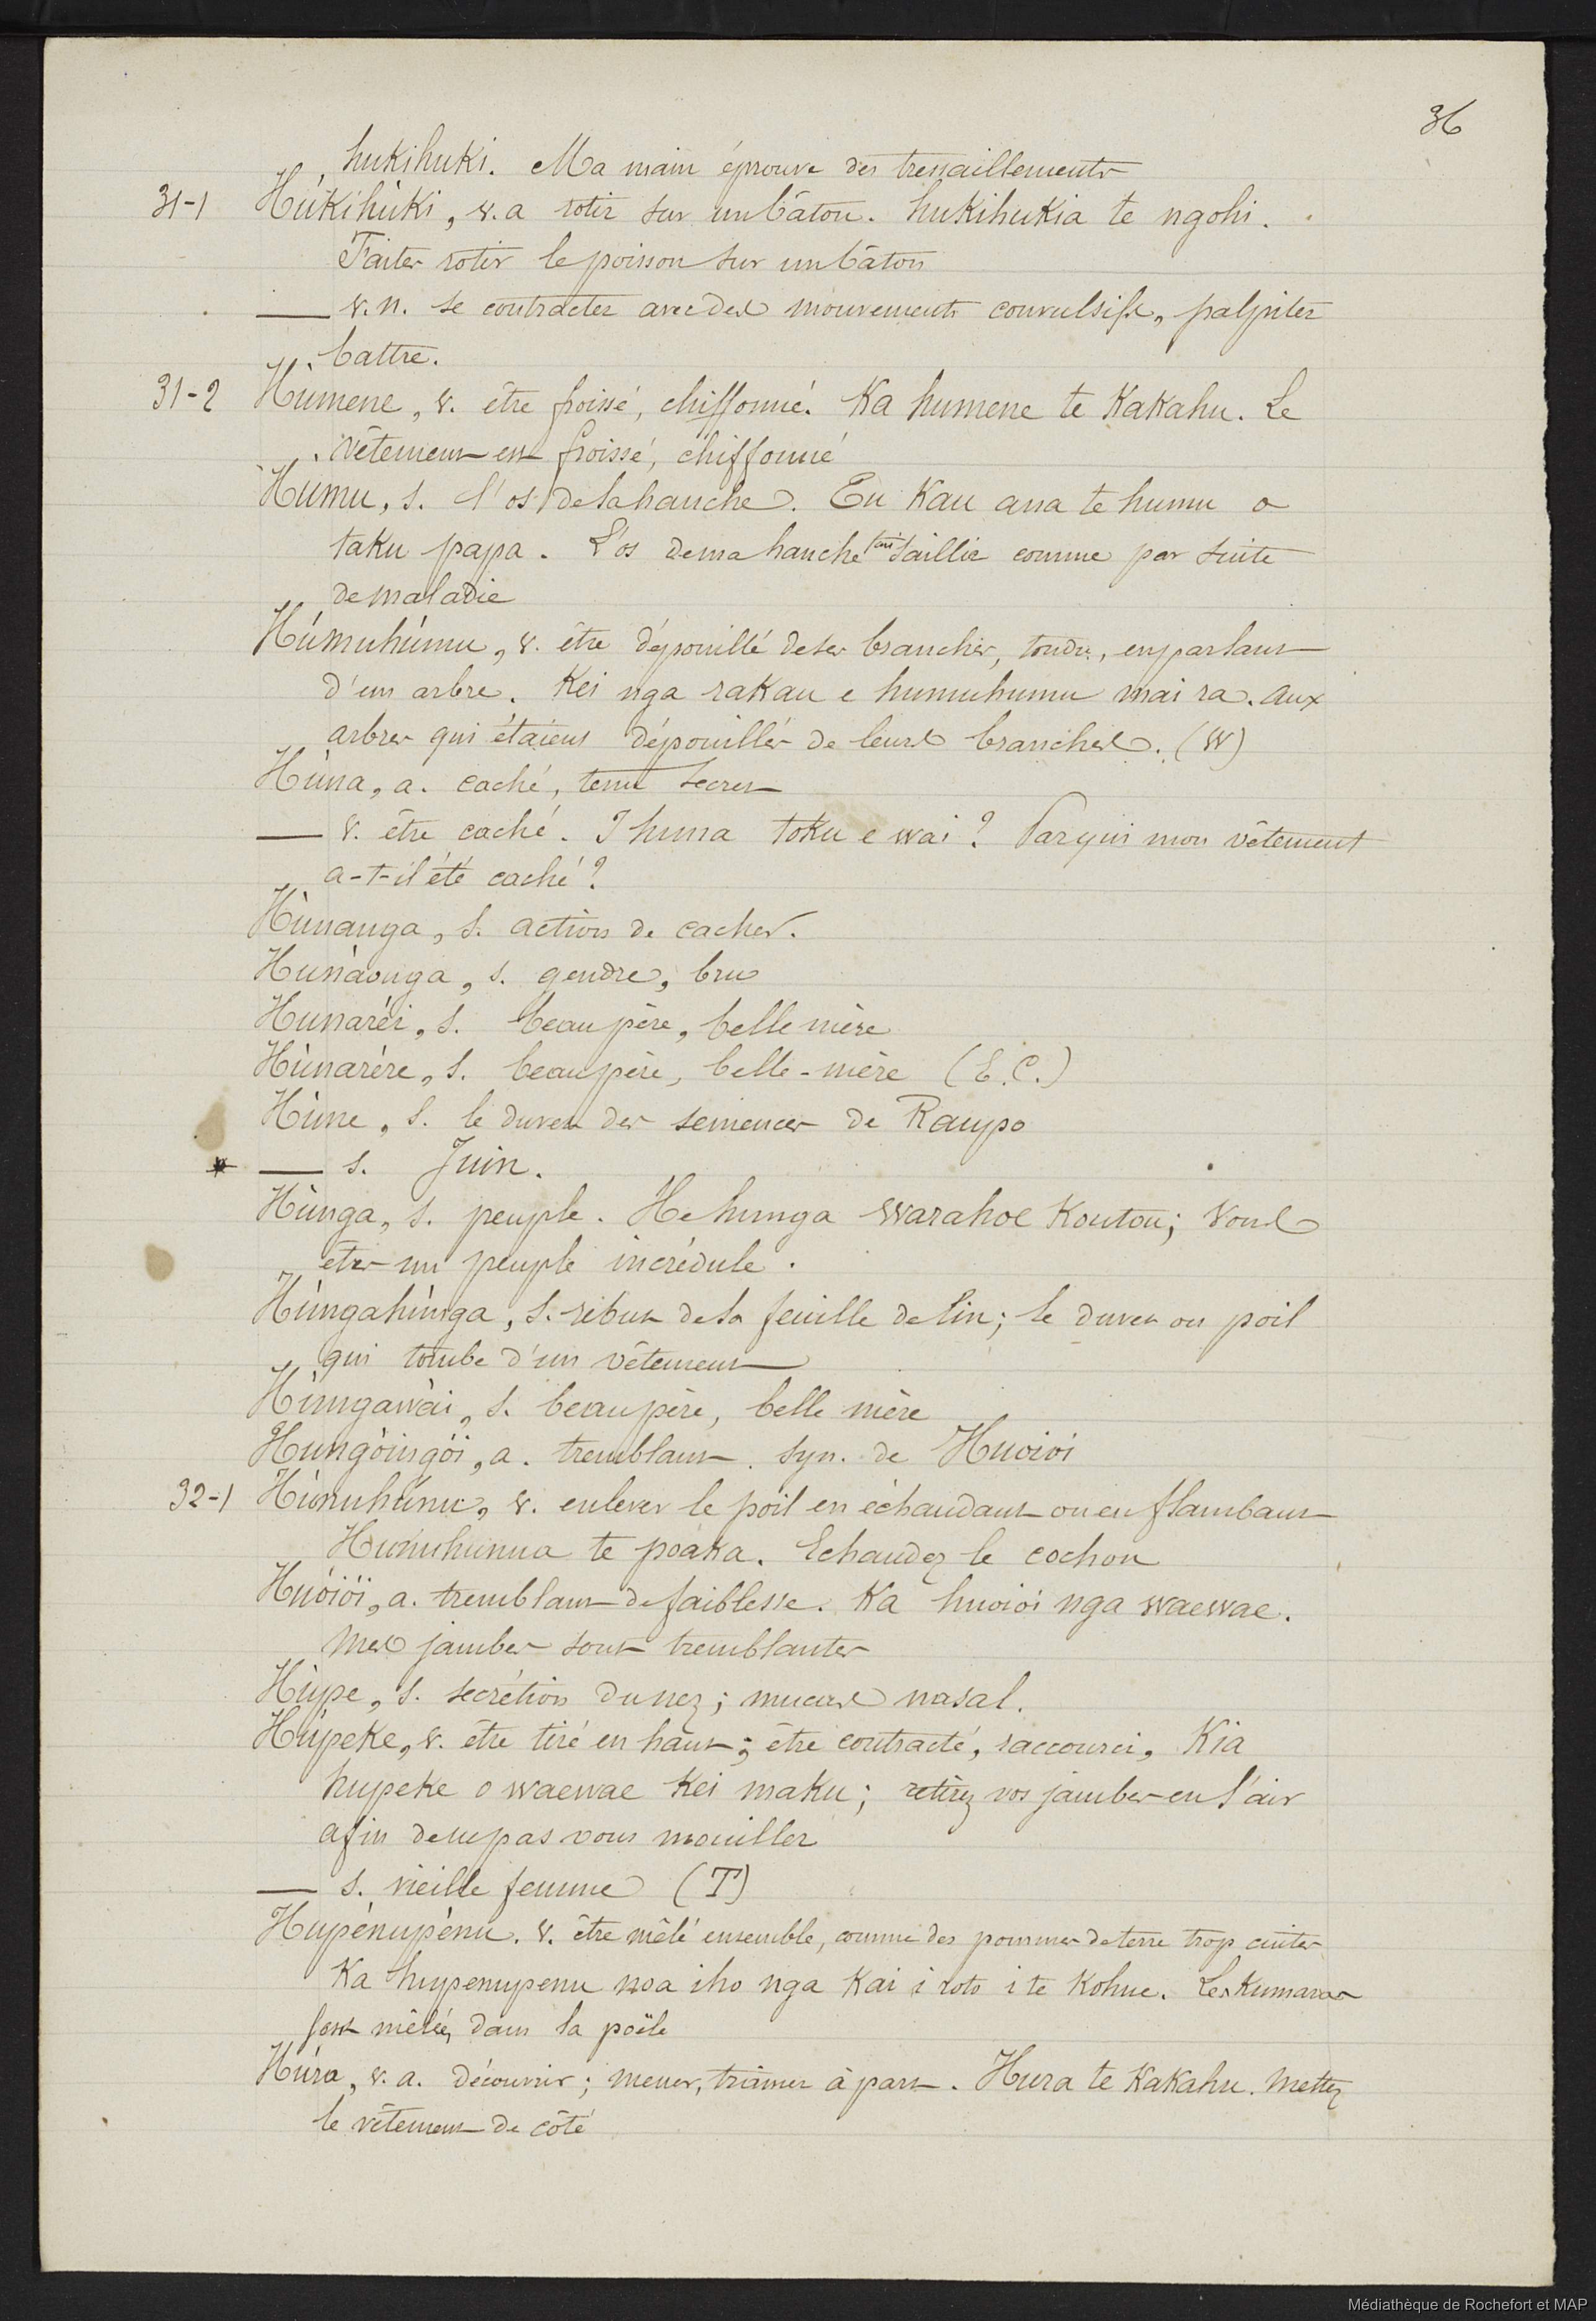 36
hukihuki. Ma main éprouve des tressaillements
31-1 Húkihúki, v. a rotir sur un bâton. hukihukia te ngohi.
Faites rotir le poisson sur un bâton
— v. n. se contracter avec des mouvements convulsifs, palpiter
battre.
31-2 Húmene, v. être froissé, chiffonné. Ka humene te Kakahu. Le
vêtement est froissé, chiffonné
Humu, s. l'os de la hanche. Eu Kau ana te humu o
taku papa. L'os de ma hanche fait saillie comme par suite
de maladie
Húmuhúmu, v. être dépouillé de ses branches, tondu, en parlant
d'un arbre. Kei nga rakau e humuhumu mai ra. Aux
arbres qui étaient dépouillés de leurs branches. (W)
Húna, a. caché, tenu secret
— v. être caché. I huna toku e wai? Par qui mon vêtement
a-t-il été caché?
Húnanga, s. action de cacher.
Hunàonga, s. gendre, bru
Hunaréi, s. beau père, belle mère
Húnarére, s. beau père, belle-mère (E.C.)
Húne, s. le duvet des semences de Raupo
* — s. Juin.
Húnga, s. peuple. He hunga warahoe Koutou; Vous
êtes un peuple incrédule.
Húngahúnga, s. rebut de la feuille de lin; le duvet ou poil
qui tombe d'un vêtement
Húngawài, s. beau père, belle mère
Hungòingòi, a. tremblant. syn. de Huoioi
32-1 Húnuhúnu, v. enlever le poil en échaudant ou en flambant
Hunuhunua te poaka. Echaudez le cochon
Huóiöi, a. tremblant de faiblesse. Ka huoioi nga waewae.
Mes jambes sont tremblantes
Húpe, s. secrétion du nez; mucus nasal.
Húpeke, v. être tiré en haut; être contracté, raccourci, Kia
hupeke o waewae Kei maku; retirez vos jambes en l'air
afin de ne pas vous mouiller
— s. vieille femme (T)
Hupénupénu. v. être mêlé ensemble, comme des pommes de terre trop cuites
Ka hupenupenu noa iho nga Kai i roto i te Kohue. Les Kumaras
sont mêlés dans la poële
Húra, v. a. découvrir; mener, traîner à part. Hura te Kakahu. Mettez
le vêtement de côté
Médiathèque de Rochefort et MAP